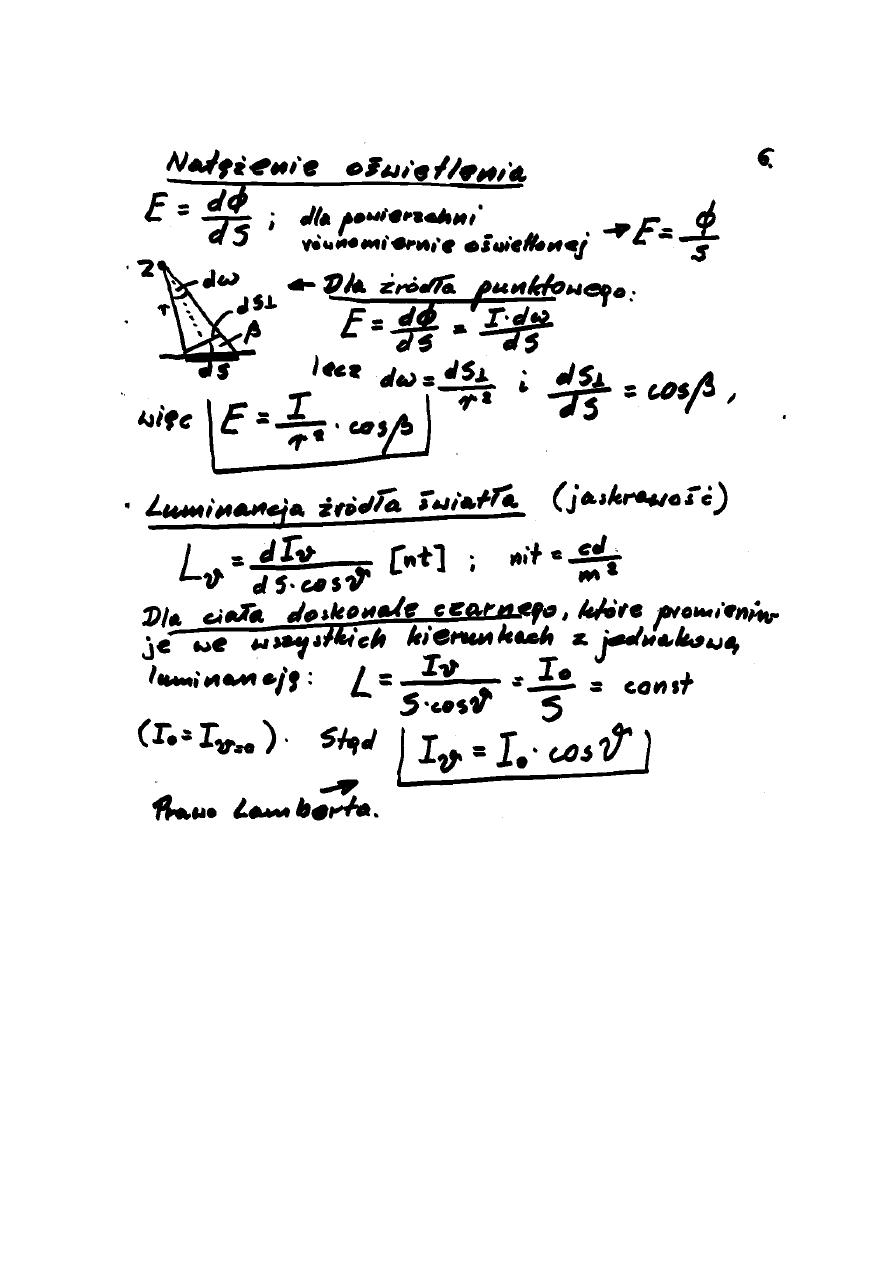 6.
Natężenie oświetlenia
E = dϕ/dS ; dla powierzchni równomiernie oświetlonej → E = ϕ/S
Z dω r dS⊥ β dS
← Dla źródła punktowego:
E = dϕ/dS = I·dω/dS
lecz dω = dS⊥/r² i dS⊥/dS = cosβ,
więc E = I/r² · cosβ
Luminancja źródła światła (jaskrawość)
Lϑ = dIϑ/dS·cosϑ [nt] ; nit = cd/m²
Dla ciała doskonale czarnego, które promieniu
je we wszystkich kierunkach z jednakową
luminancją: L = Iϑ/S·cosϑ = I₀/S = const
(I₀ = Iϑ=0). Stąd Iϑ = I₀ · cosϑ
Prawo Lamberta.